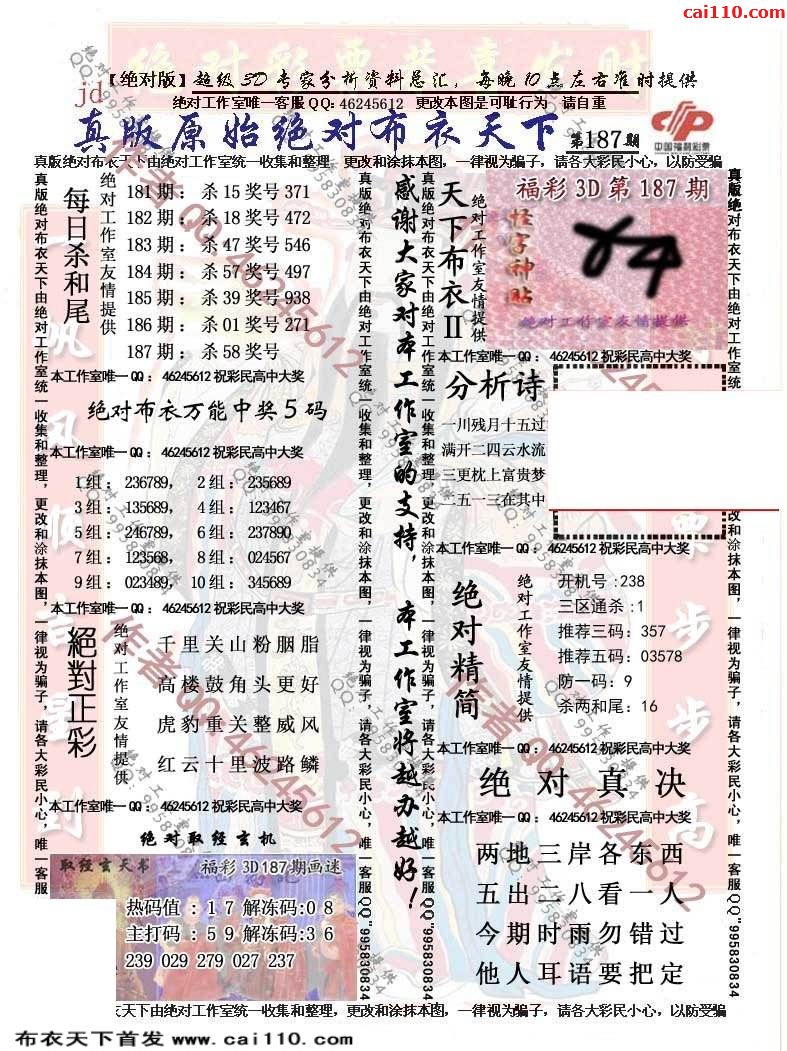 cai110.com
【绝对版】超级3D专家分析资料总汇，每晚10点左右准时提供
jd
绝对工作室唯一客服QQ: 46245612 更改本图是可耻行为 请自重
真版原始绝对布衣天下 第187期
中国福利彩票
真版绝对布衣天下由绝对工作室统一收集和整理，更改和涂抹本图，一律视为骗子，请各大彩民小心，以防受骗
每日杀和尾
绝对工作室友情提供
181期：杀15奖号371
182期：杀18奖号472
183期：杀47奖号546
184期：杀57奖号497
185期：杀39奖号938
186期：杀01奖号271
187期：杀58奖号
本工作室唯一QQ：46245612祝彩民高中大奖
绝对布衣万能中奖5码
本工作室唯一QQ：46245612祝彩民高中大奖
1组：236789， 2组：235689
3组：135689， 4组：123467
5组：246789， 6组：237890
7组：123568， 8组：024567
9组：023489， 10组：345689
本工作室唯一QQ：46245612祝彩民高中大奖
絕對正彩
绝对工作室友情提供
千里关山粉胭脂
高楼鼓角头更好
虎豹重关整威风
红云十里波路鳞
本工作室唯一QQ：46245612祝彩民高中大奖
绝对取经玄机
取经玄天书 福彩3D187期画迷
热码值：17解冻码:08
主打码：59解冻码:36
239 029 279 027 237
感谢大家对本工作室的支持，本工作室将越办越好！
天下布衣II
绝对工作室友情提供
福彩3D第187期
怪字神贴
绝对工作室友情提供
本工作室唯一QQ：46245612祝彩民高中大奖
分析诗
一川残月十五过
满开二四云水流
三更枕上富贵梦
二五一三在其中
本工作室唯一QQ：46245612祝彩民高中大奖
绝对精简
绝对工作室友情提供
开机号:238
三区通杀:1
推荐三码：357
推荐五码：03578
防一码：9
杀两和尾：16
本工作室唯一QQ：46245612祝彩民高中大奖
绝对真决
本工作室唯一QQ：46245612祝彩民高中大奖
两地三岸各东西
五出二八看一人
今期时雨勿错过
他人耳语要把定
真版绝对布衣天下由绝对工作室统一收集和整理，更改和涂抹本图，一律视为骗子，请各大彩民小心，唯一客服QQ"995830834
衣天下由绝对工作室统一收集和整理，更改和涂抹本图，一律视为骗子，请各大彩民小心，以防受骗
布衣天下首发 www.cai110.com